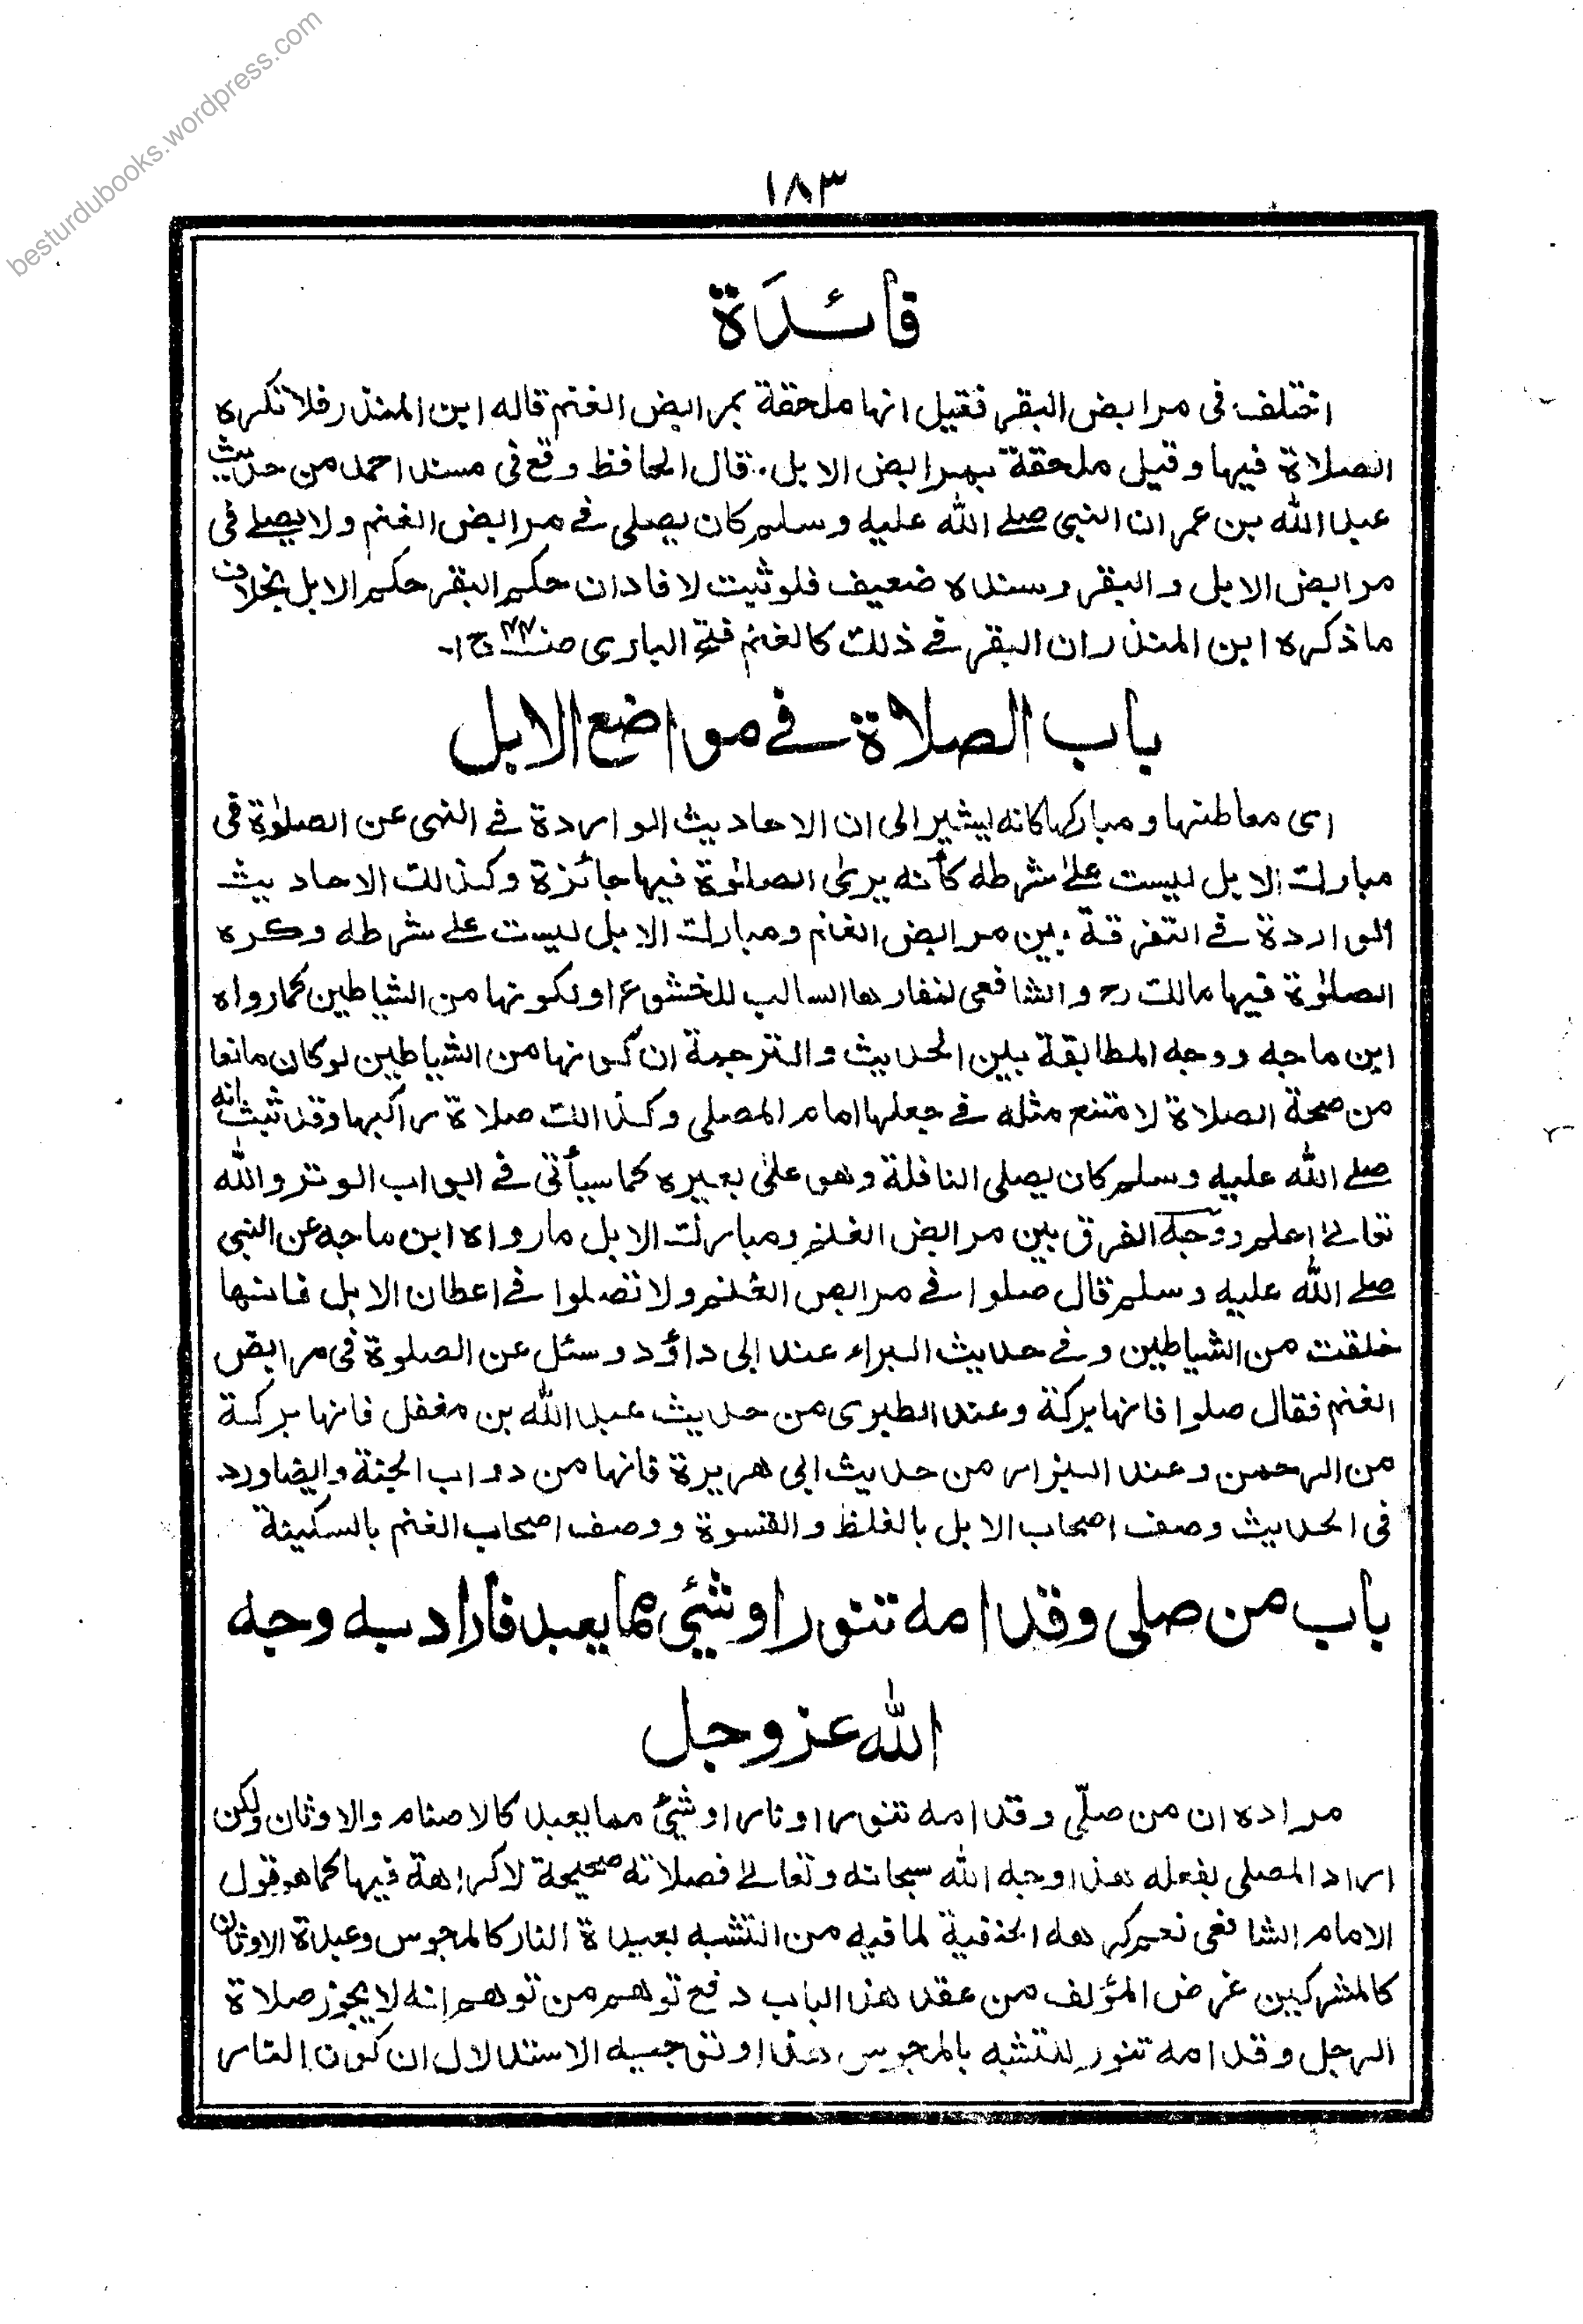 besturdubooks.wordpress.com
١٨٣
فائدة
اختلف فى مرابض البقر فقيل انها ملحقة بمرابض الغنم قاله ابن المنذر فلا تكره
الصلاة فيها وقيل ملحقة بمرابض الابل. قال الحافظ وقع فى مسند احمد من حديث
عبد الله بن عمر ان النبى صلے الله عليه وسلم كان يصلى فے مرابض الغنم ولا يصلے فى
مرابض الابل والبقر وسنده ضعيف فلو ثبت لافاد ان حكم البقر حكم الابل بخلاف
ما ذكره ابن المنذر ان البقر فے ذلك كالغنم فتح البارى ج ١-
باب الصلاة فے مواضع الابل
اى معاطنها ومباركها كانه يشير الى ان الاحاديث الواردة فے النهى عن الصلوٰة فى
مبارك الابل ليست علےٰ شرطه كأنه يرىٰ الصلوٰة فيها جائزة وكذالك الاحاديث
الواردة فے التفرقة بين مرابض الغنم ومبارك الابل ليست علے شرطه وكره
الصلوٰة فيها مالك رح والشافعى لنفارها السالب للخشوع او لكونها من الشياطين كما رواه
ابن ماجه ووجه المطابقة بين الحديث والترجمة ان كونها من الشياطين لو كان مانعا
من صحة الصلاة لامتنع مثله فے جعلها امام المصلى وكذالك صلاة راكبها وقد ثبت انه
صلے الله عليه وسلم كان يصلى النافلة وهو علىٰ بعيره كما سيأتى فے ابواب الوتر والله
تعالےٰ اعلم ووجه الفرق بين مرابض الغنم ومبارك الابل ما رواه ابن ماجه عن النبى
صلے الله عليه وسلم قال صلوا فے مرابض الغنم ولا تصلوا فے اعطان الابل فانها
خلقت من الشياطين وفے حديث البراء عند ابى داؤد وسئل عن الصلوة فى مرابض
الغنم فقال صلوا فانها بركة وعند الطبرى من حديث عبد الله بن مغفل فانها بركة
من الرحمن وعند البزار من حديث ابى هريرة فانها من دواب الجنة وايضا ورد
فى الحديث وصف اصحاب الابل بالغلظ والقسوة ووصف اصحاب الغنم بالسكينة
باب من صلى وقدامه تنور او شئى مما يعبد فاراد به وجه
الله عز وجل
مراده ان من صلّى وقدامه تنور او نار او شئى مما يعبد كالاصنام والاوثان ولكن
اراد المصلى بفعله هذا وجه الله سبحانه وتعالےٰ فصلاته صحيحة لا كراهة فيها كما هو قول
الامام الشافعى نعم كرهه الحنفية لما فيه من التشبه بعبدة النار كالمجوس وعبدة الاوثان
كالمشركين غرض المؤلف من عقد هذا الباب دفع توهم من توهم انه لا يجوز صلاة
الرجل وقدامه تنور للتشبه بالمجوس هذا وتوجيه الاستدلال ان كون النار